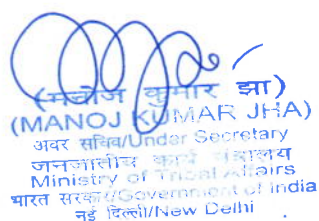 (मनोज कुमार झा)
(MANOJ KUMAR JHA)
अवर सचिव/Under Secretary
जनजातीय कार्य मंत्रालय
Ministry of Tribal Affairs
भारत सरकार/Government of India
नई दिल्ली/New Delhi